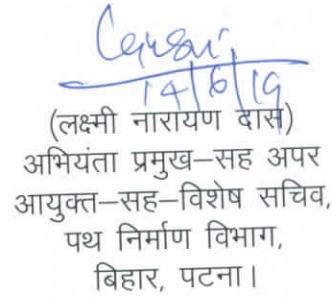 14/6/19
(लक्ष्मी नारायण दास)
अभियंता प्रमुख–सह अपर
आयुक्त–सह–विशेष सचिव,
पथ निर्माण विभाग,
बिहार, पटना।